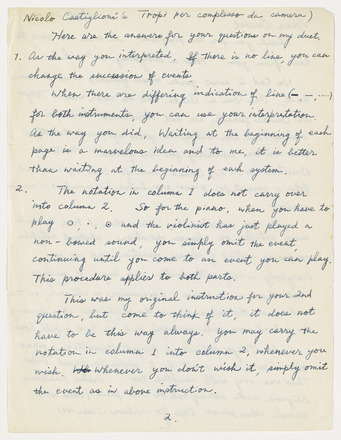 Nicolo Castiglioni's Tropi per complesso da camera)
Here are the answers for your questions on my duet.
1. As the way you interpreted. If there is no line, you can
change the succession of events.
When there are differing indication of line (— – , ...)
for both instruments, you can use your interpretation.
As the way you did, Waiting at the beginning of each
page is a marvelous idea and to me, it is better
than waiting at the beginning of each system.
2. The notation in column 1 does not carry over
into column 2. So for the piano, when you have to
play o, ·, ⊙ and the violinist has just played a
non-bowed sound, you simply omit the event,
continuing until you come to an event you can play.
This procedure applies to both parts.
This was my original instruction for your 2nd
question, but come to think of it, it does not
have to be this way always. You may carry the
notation in column 1 into column 2, whenever you
wish. Whenever you don't wish it, simply omit
the event as in above instruction.
2.